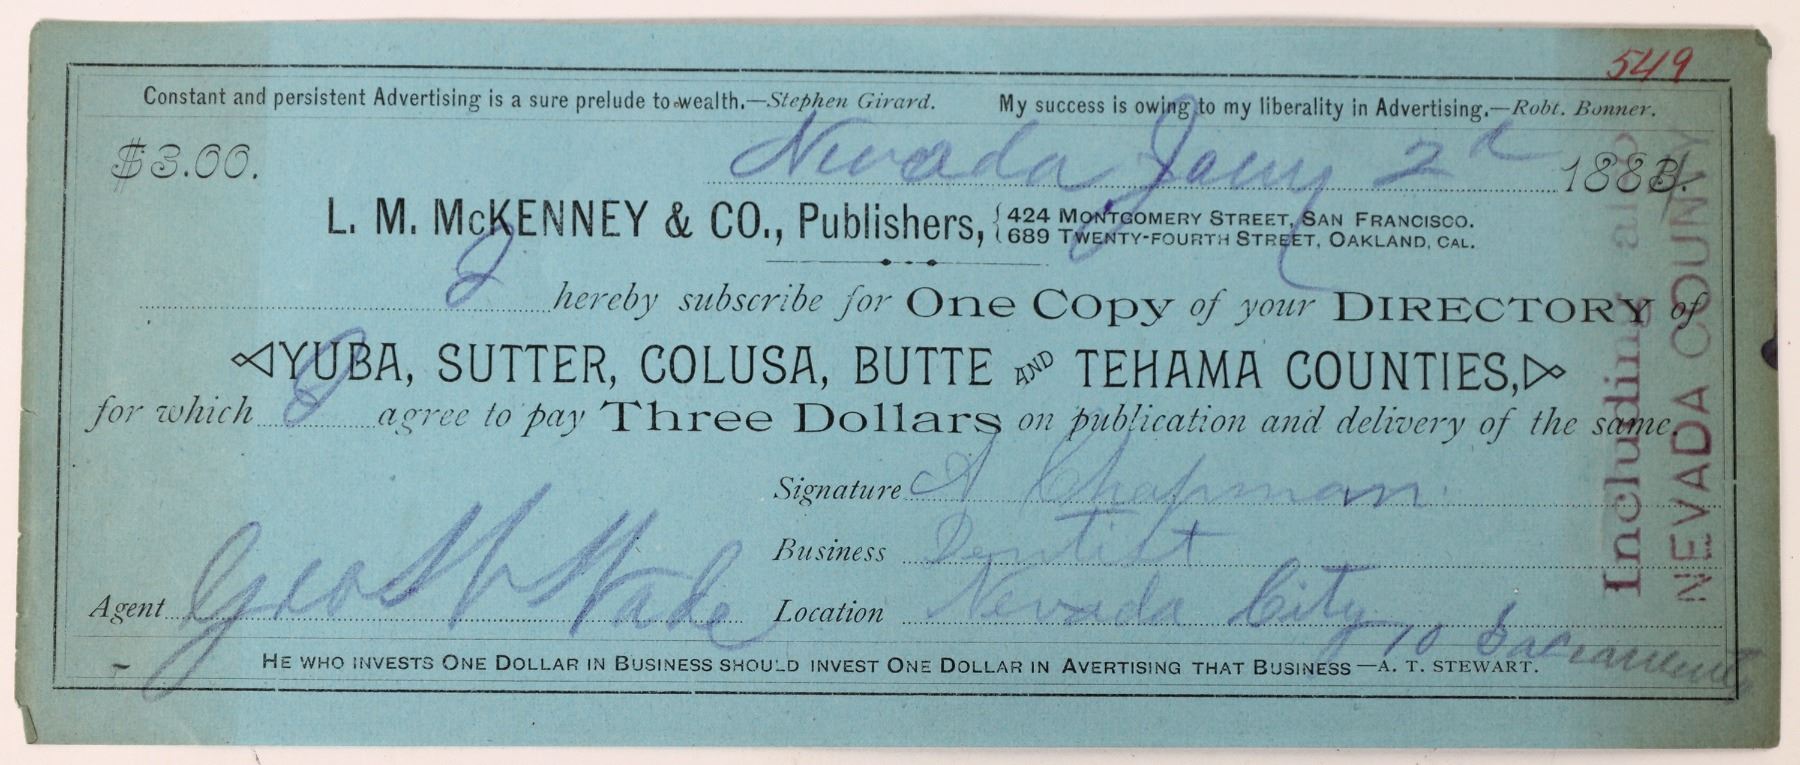 549
Constant and persistent Advertising is a sure prelude to wealth.—Stephen Girard. My success is owing to my liberality in Advertising.—Robt. Bonner.
$3.00.
Nevada Jany 2d 1884.
L. M. McKENNEY & CO., Publishers, { 424 MONTGOMERY STREET, SAN FRANCISCO.
689 TWENTY-FOURTH STREET, OAKLAND, CAL.
I hereby subscribe for One Copy of your DIRECTORY of
YUBA, SUTTER, COLUSA, BUTTE AND TEHAMA COUNTIES,
for which I agree to pay Three Dollars on publication and delivery of the same.
Signature A Chapman.
Business Dentist
Agent Geo W Wade Location Nevada City
10 Sacramento
HE WHO INVESTS ONE DOLLAR IN BUSINESS SHOULD INVEST ONE DOLLAR IN AVERTISING THAT BUSINESS—A. T. STEWART.
Including also
NEVADA COUNTY